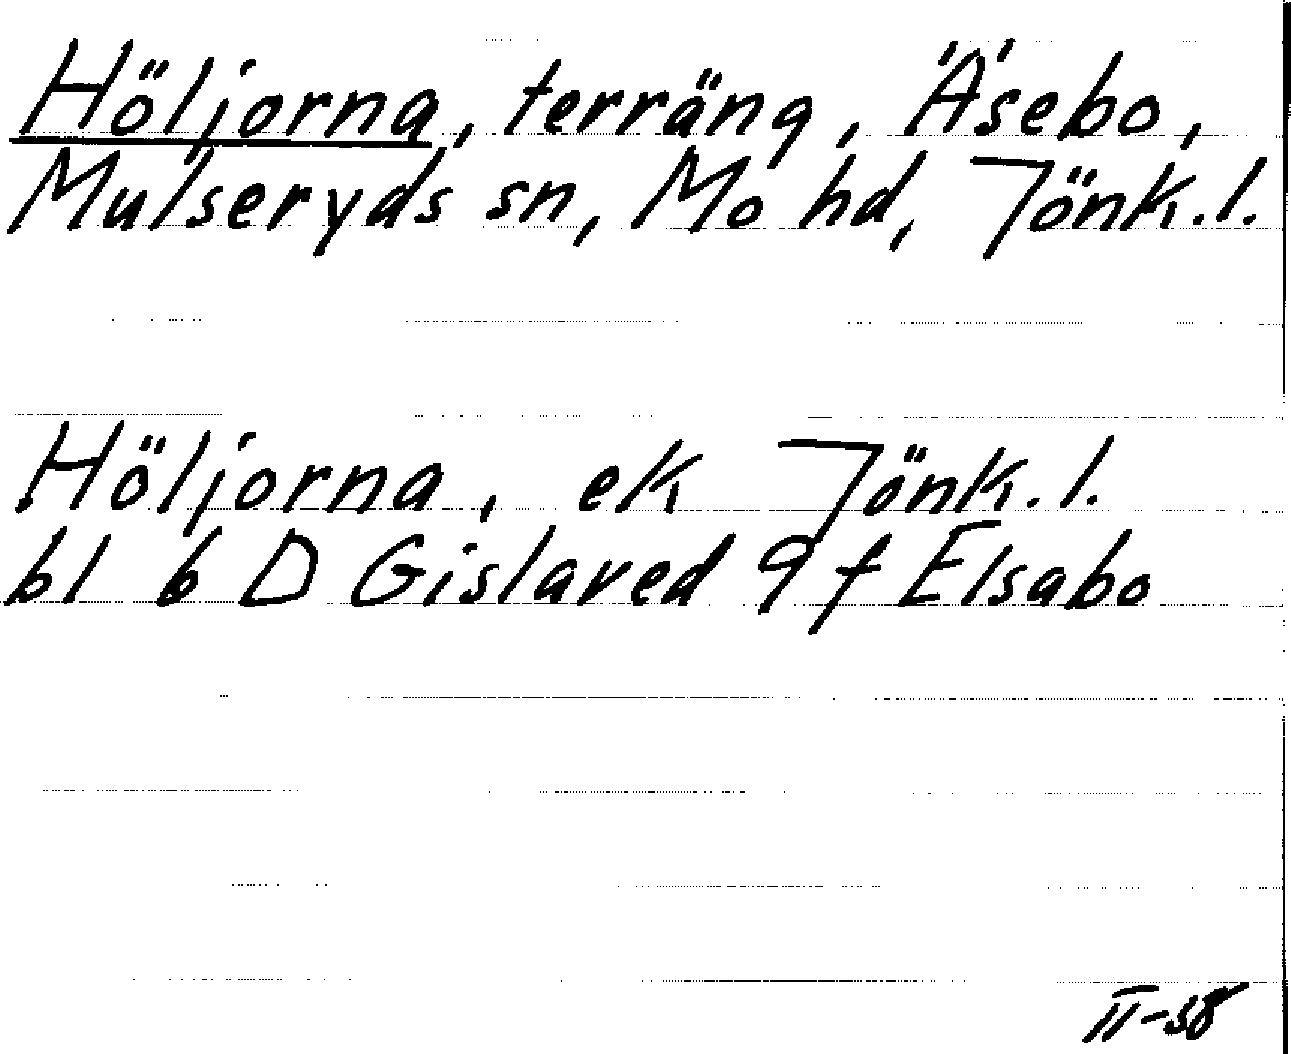 Höljorna, terräng, Äsebo,
Mulseryds sn, Mo hd, Jönk.l.
Höljorna, ek Jönk.l.
bl 6 D Gislaved 9 f Elsabo
II-58